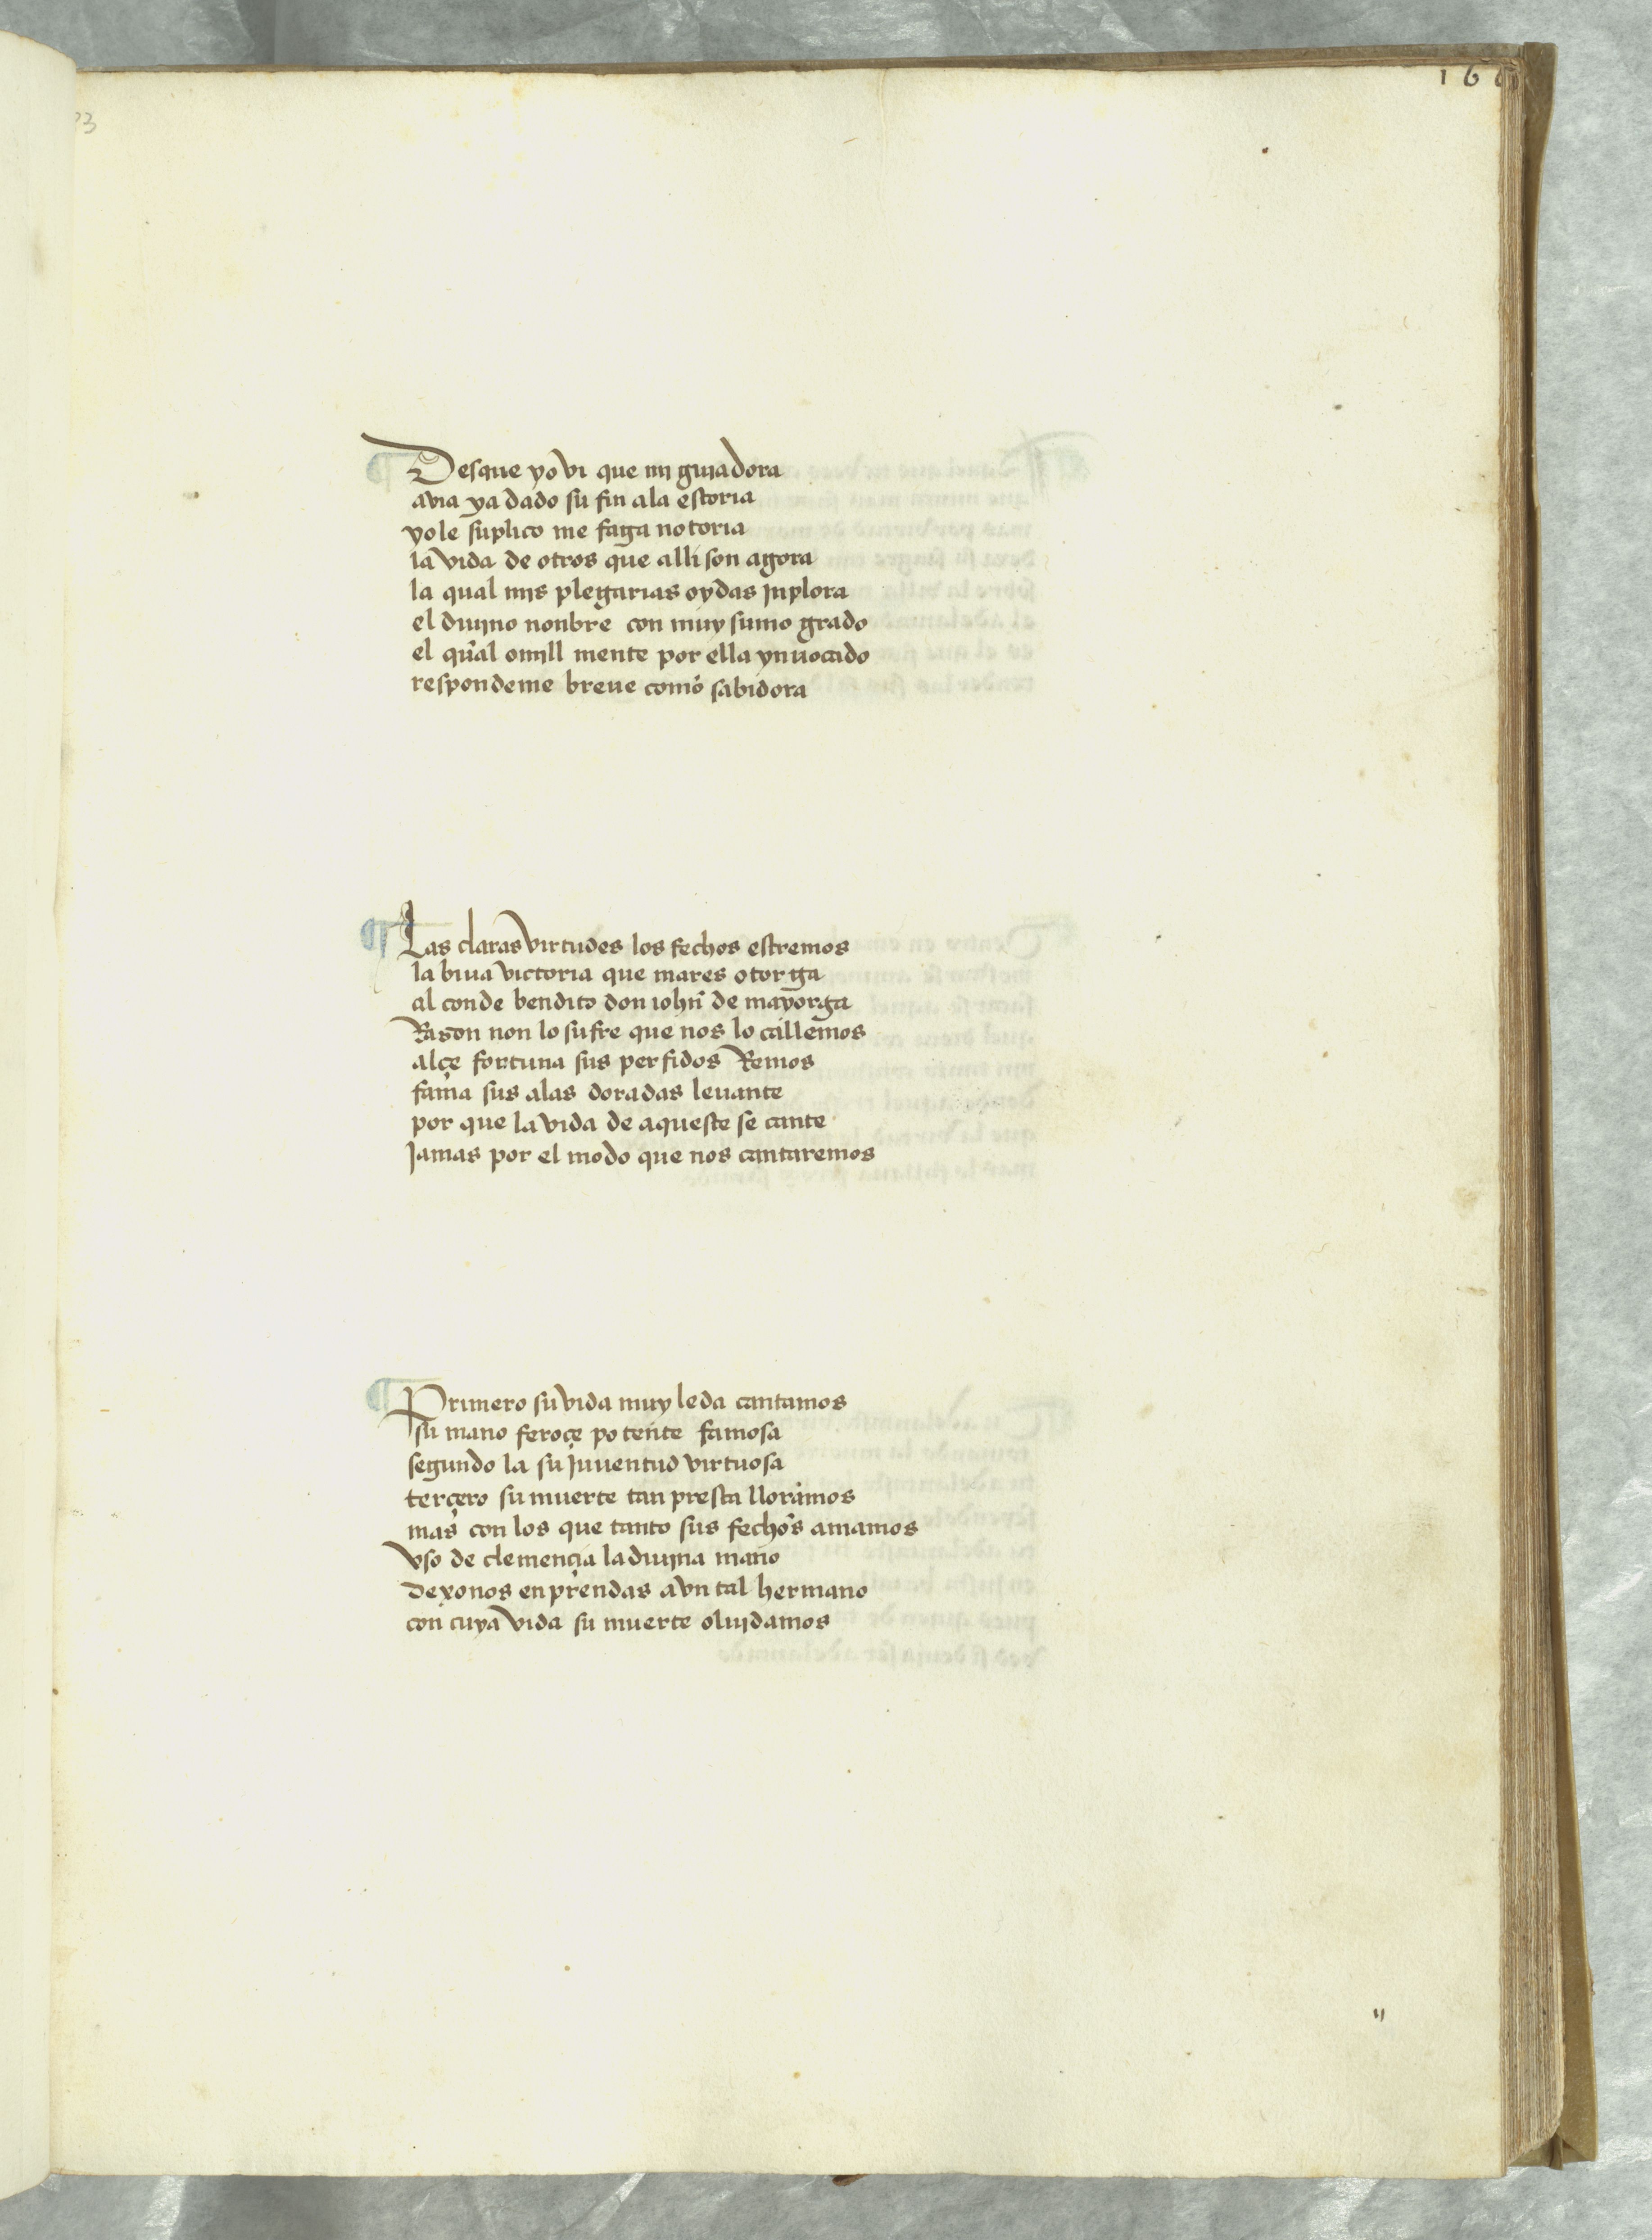 Desque yo vi que mi guiadora
avia ya dado su fin ala estoria
yo le suplico me faga notoria
la vida de otros que alli son agora
la qual mjs plegarias oydas jnplora
el diujno nonbre con muy sumo grado
el qual omjll mente por ella ynuocado
respondeme breue como sabidora
¶ Las claras virtudes los fechos estremos
la biua victoria que mares otorga
al conde bendito don iohn̄ de mayorga
Rason non lo sufre que nos lo callemos
alçe fortuna sus perfidos Remos
fama sus alas doradas leuante
por que la vida de aqueste se cante
Jamas por el modo que nos cantaremos
¶ Primero su vida muy leda cantamos
su mano feroçe potente famosa
segundo la su juuentud virtuosa
terçero su muerte tan presta lloramos
mas con los que tanto sus fechos amamos
vso de clemençia la diujna mano
dexonos en prendas a vn tal hermano
con cuya vida su muerte oluidamos